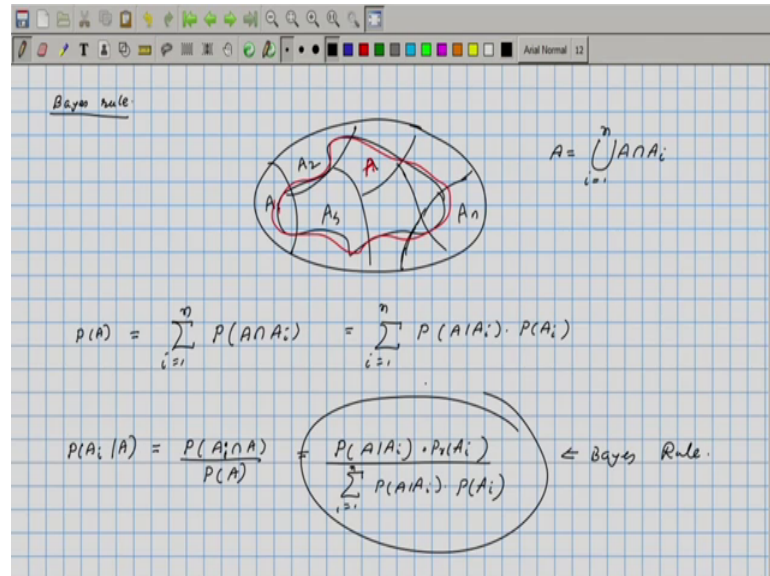 Arial Normal 12
Bayes rule.
A2 A
A1 A3 An
A = ⋃_{i=1}^{n} A∩Ai
P(A) = ∑_{i=1}^{n} P(A∩Ai) = ∑_{i=1}^{n} P(A|Ai)·P(Ai)
P(Ai|A) = P(Ai∩A)/P(A) = P(A|Ai)·Pr(Ai) / ∑_{i=1}^{n} P(A|Ai)·P(Ai) ← Bayes Rule.